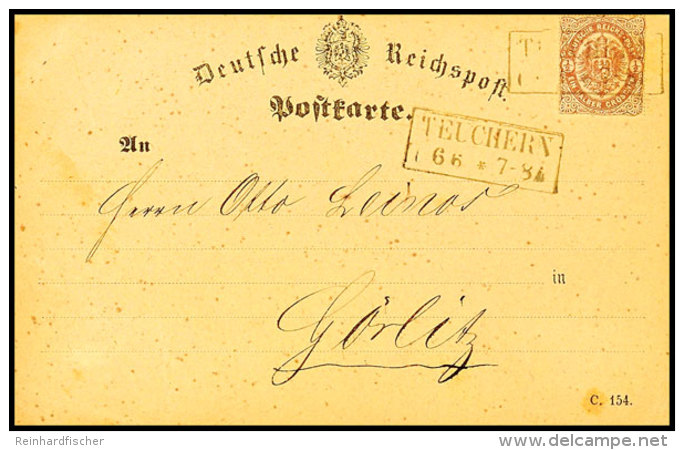 Deutsche Reichspost.
Postkarte.
TEUCHERN
6 6 * 7-8
An
Herrn Otto
in
Görlitz
C. 154.
Reinhardfischer
www.delcampe.net